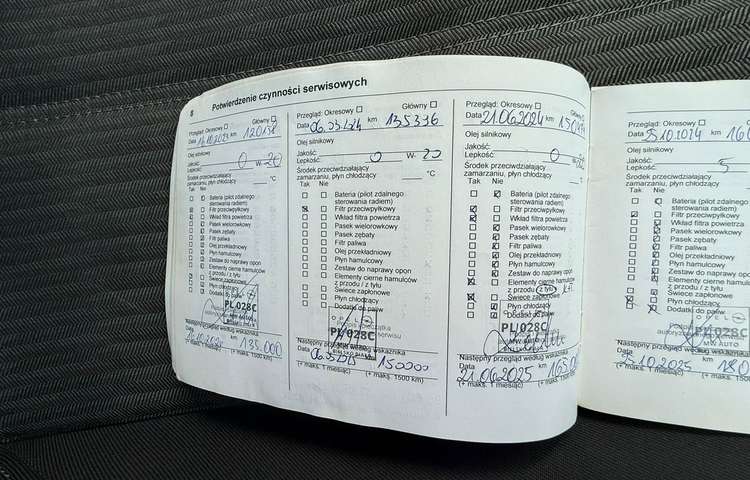 8
Potwierdzenie czynności serwisowych
Przegląd: Okresowy Główny
Data km
Olej silnikowy
Jakość:
Lepkość: 0 W- 20
Środek przeciwdziałający
zamarzaniu, płyn chłodzący °C
Tak Nie
Bateria (pilot zdalnego
sterowania radiem)
Filtr przeciwpyłkowy
Wkład filtra powietrza
Pasek wielorowkowy
Pasek zębaty
Filtr paliwa
Olej przekładniowy
Płyn hamulcowy
Zestaw do naprawy opon
Elementy cierne hamulców
z przodu / z tyłu
Świece zapłonowe
Płyn chłodzący
Dodatki do paliw
PL 028C
Następny przegląd według wskaźnika
Data km 135.000
(+ maks. 1 miesiąc) (+ maks. 1500 km)
Przegląd: Okresowy Główny
Data km 135336
Olej silnikowy
Jakość:
Lepkość: 0 W- 20
Środek przeciwdziałający
zamarzaniu, płyn chłodzący °C
Tak Nie
Bateria (pilot zdalnego
sterowania radiem)
Filtr przeciwpyłkowy
Wkład filtra powietrza
Pasek wielorowkowy
Pasek zębaty
Filtr paliwa
Olej przekładniowy
Płyn hamulcowy
Zestaw do naprawy opon
Elementy cierne hamulców
z przodu / z tyłu
Świece zapłonowe
Płyn chłodzący
Dodatki do paliw
PL 028C
Następny przegląd według wskaźnika
Data km 150000
(+ maks. 1 miesiąc) (+ maks. 1500 km)
Przegląd: Okresowy Główny
Data 21.06.2024 km
Olej silnikowy
Jakość:
Lepkość: 0 W-
Środek przeciwdziałający
zamarzaniu, płyn chłodzący °C
Tak Nie
Bateria (pilot zdalnego
sterowania radiem)
Filtr przeciwpyłkowy
Wkład filtra powietrza
Pasek wielorowkowy
Pasek zębaty
Filtr paliwa
Olej przekładniowy
Płyn hamulcowy
Zestaw do naprawy opon
Elementy cierne hamulców
z przodu / z tyłu
Świece zapłonowe
Płyn chłodzący
Dodatki do paliw
PL 028C
Następny przegląd według wskaźnika
Data 21.06.2025
(+ maks. 1 miesiąc) (+ maks. 1500 km)
Przegląd: Okresowy
Data 25.10.2024 km
Olej silnikowy
Jakość:
Lepkość: 5
Środek przeciwdziałający
zamarzaniu, płyn chłodzący
Tak Nie
Bateria (pilot zdalnego
sterowania radiem)
Filtr przeciwpyłkowy
Wkład filtra powietrza
Pasek wielorowkowy
Pasek zębaty
Filtr paliwa
Olej przekładniowy
Płyn hamulcowy
Zestaw do naprawy opon
Elementy cierne hamulców
z przodu / z tyłu
Świece zapłonowe
Płyn chłodzący
Dodatki do paliw
OPEL
PL 028C
MW AUTO
Następny przegląd według wskaźnika
Data 25.10.2025
(+ maks. 1 miesiąc) (+ maks. 1500